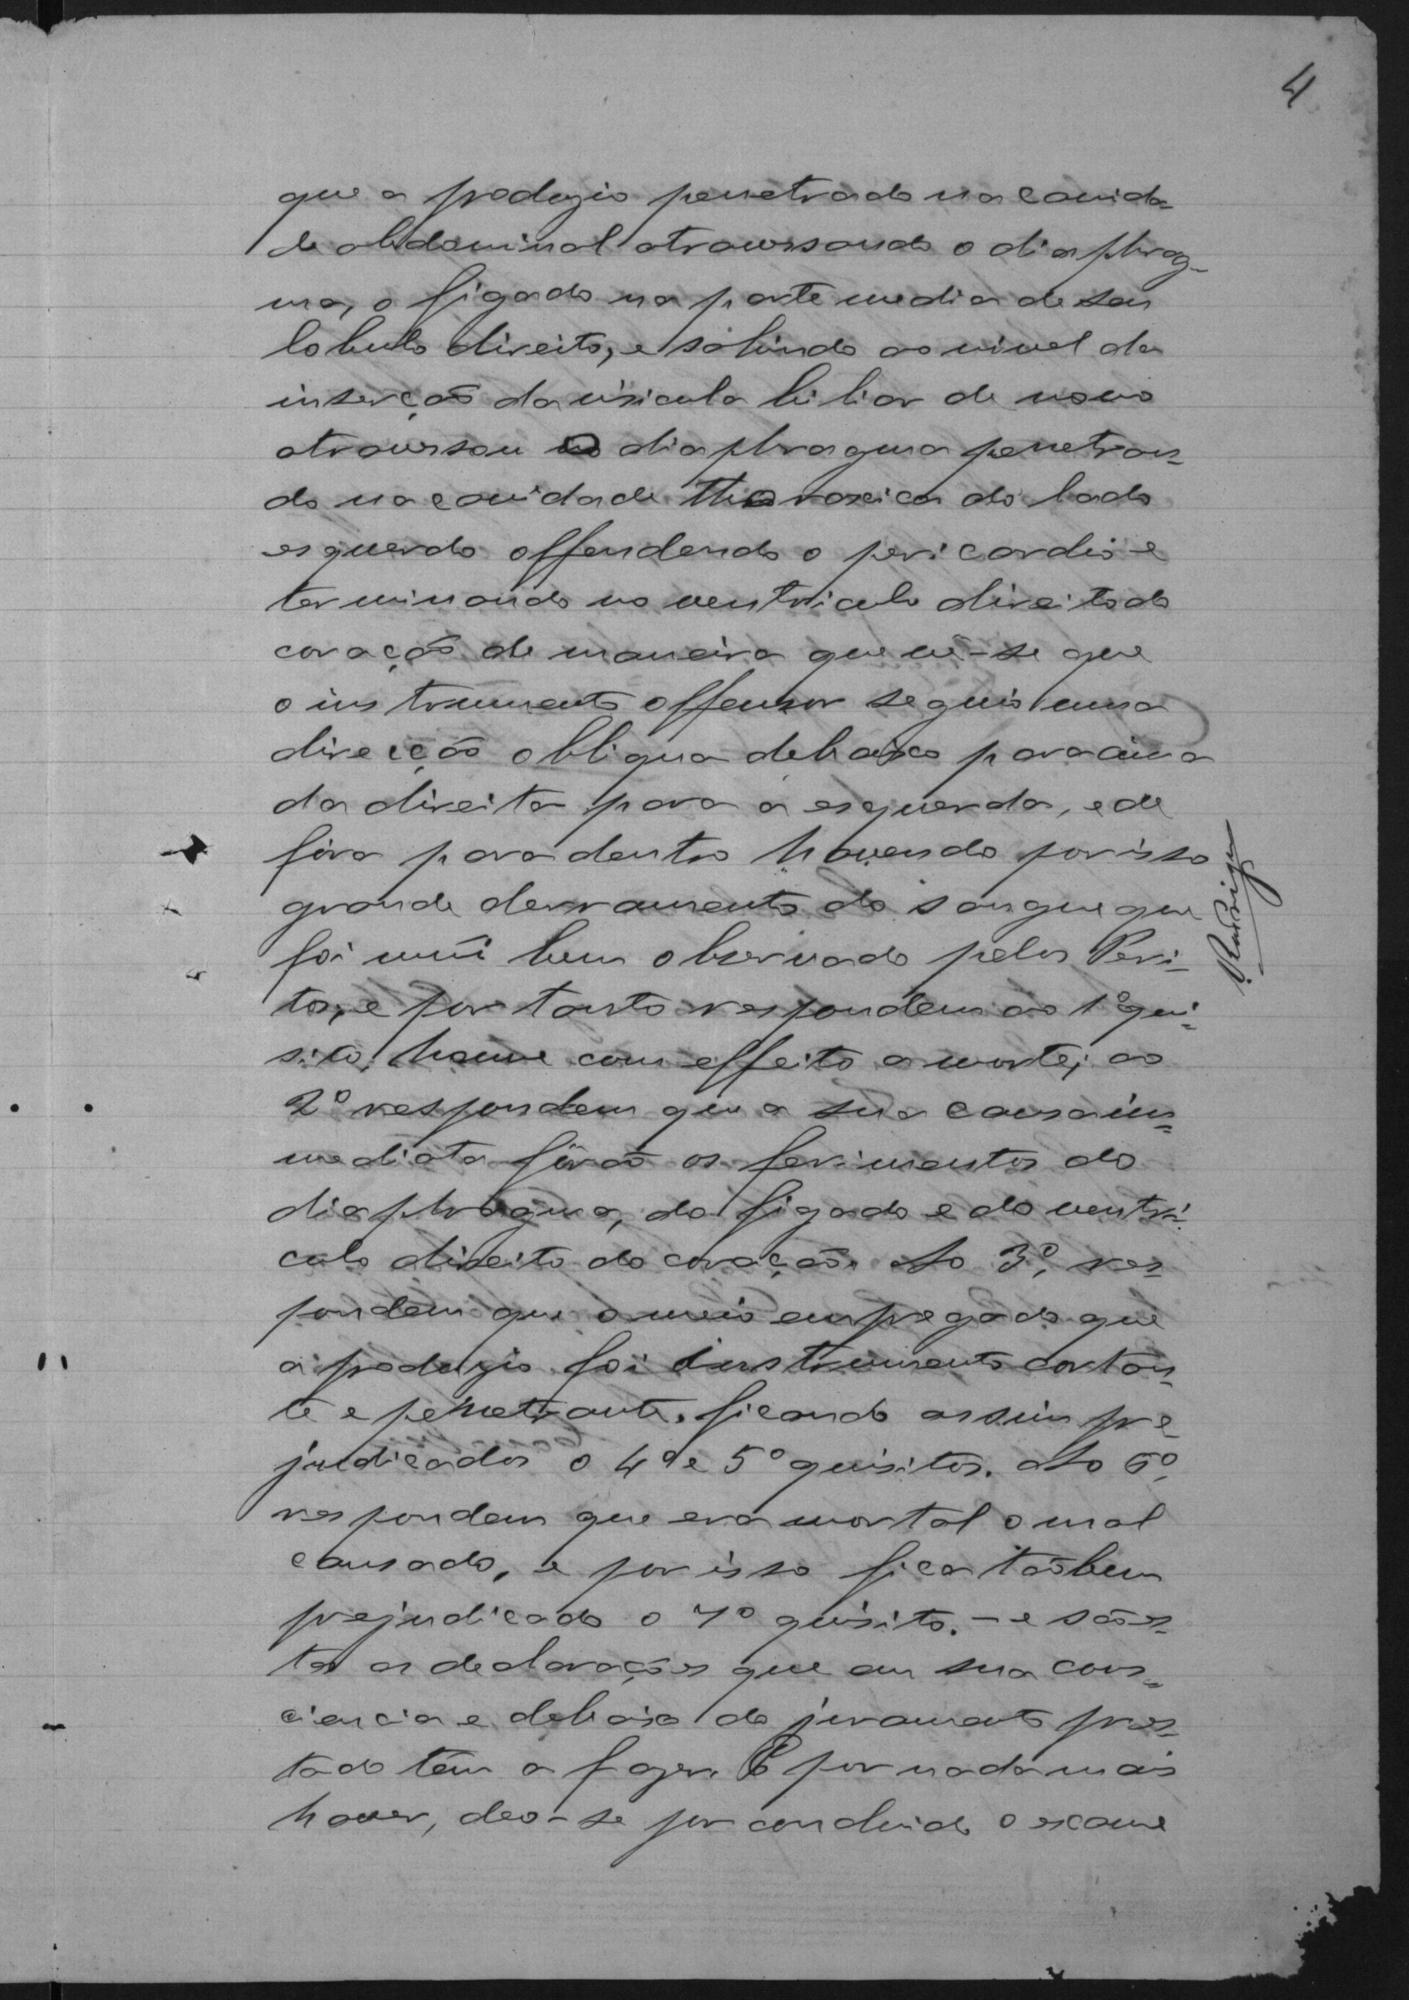 4
que a prodozio penetrado na cavida=
de abdominal atravessando o diaphrag-
ma, o figado na parte media de seu
lobulo direito, e sahindo ao nivel da
inserção da visicula biliar de novo
atravessou o diaphragma penetran=
do na cavidade thoraxica do lado
esquerdo offendendo o pericardio e
terminando no ventriculo direito do
coração de maneira que vê-se que
o instrumento offensor seguio uma
direcção obliqua debaixo para cima
da direita para a esquerda, e de
fóra para dentro havendo por isso
grande derramento do sangue que
foi mui bem observado pelos Peri-
tos, e por tanto respondem ao 1º qui=
sito, houve com effeito a morte; ao
2º respondem que a sua causa im=
mediata fôrão os ferimentos do
diaphragma, do figado e do ventri-
culo direito do coração. Ao 3º, res=
pondem que o meio empregado que
a produzio foi instrumento cortan=
te e penetrante, ficando assim pre=
judicados o 4º e 5º quisitos. Ao 6º,
respondem que era mortal o mal
causado, e por isso fica tãobem
prejudicado o 7º quisito. - e são es=
tas as declarações que em sua cons=
ciencia e debaixo do juramento pres=
tado têm a fazer. E por nada mais
haver, deo-se por concluido o exame
Rodrigues